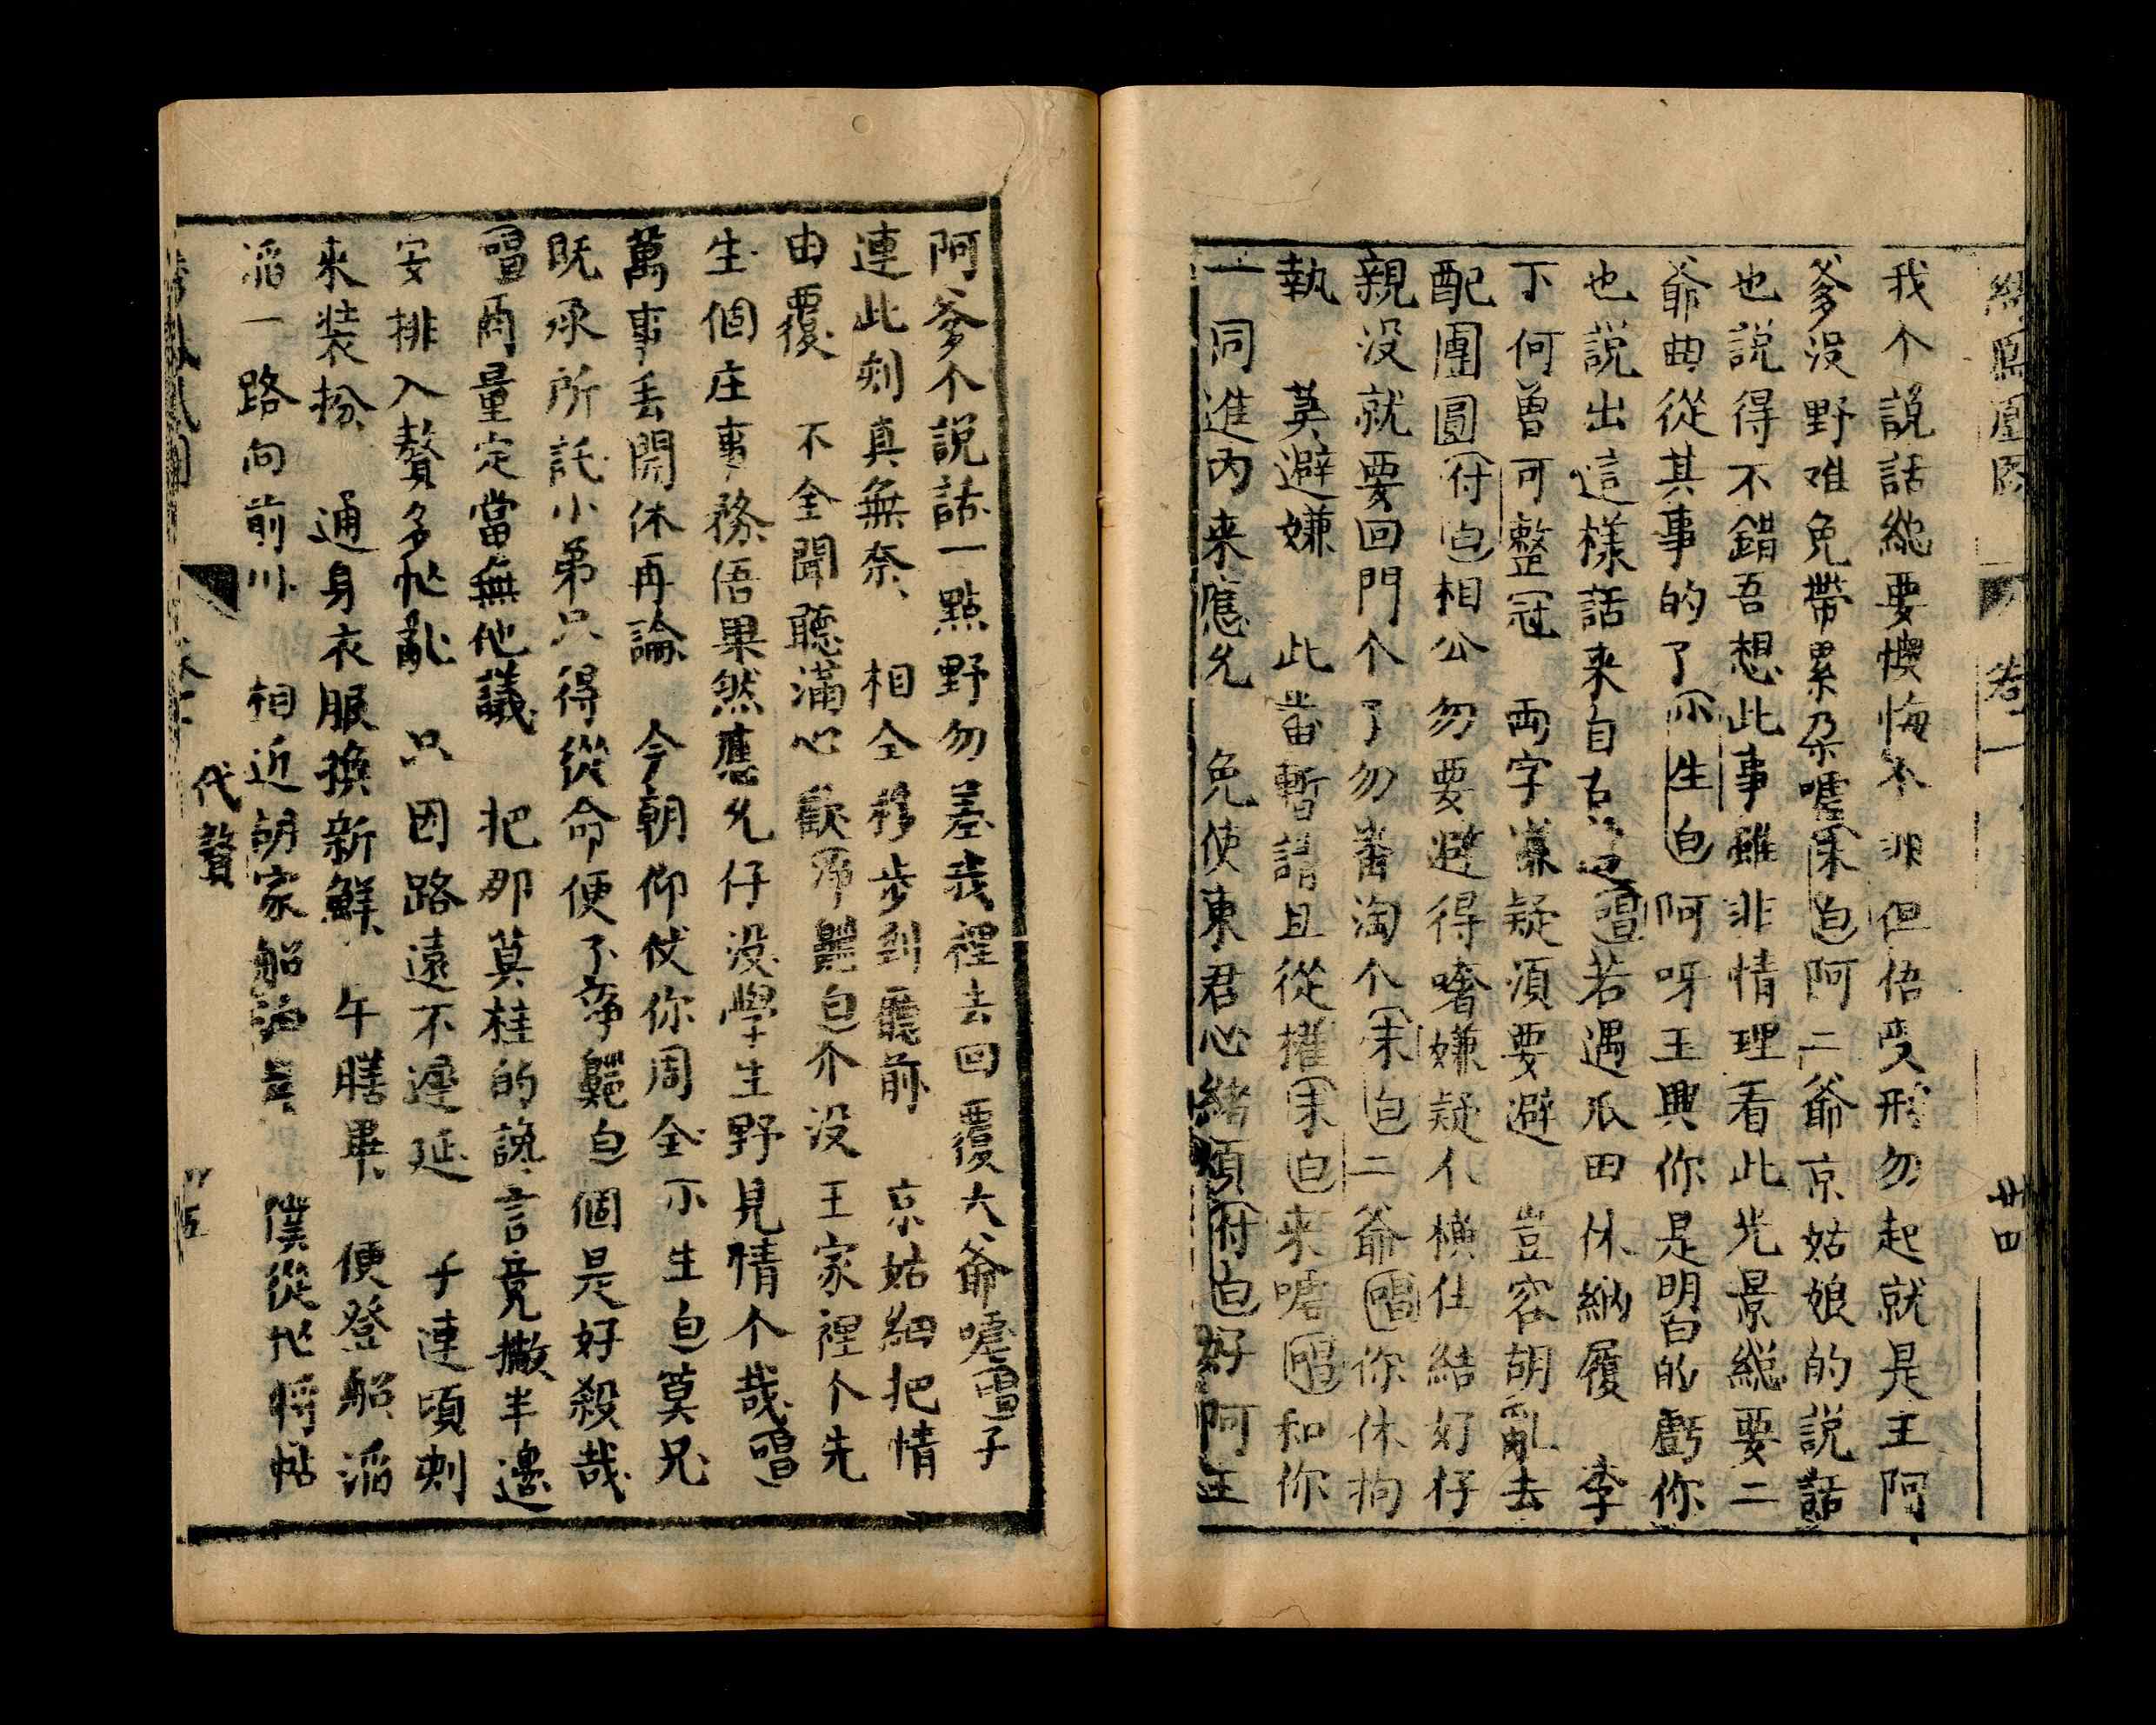 卷一
廿四
我个説話總要懊悔个非但俉受形勿起就是王阿
爹没野难免帶累朶嘘末白阿二爺京姑娘的説話
也説得不錯吾想此事雖非情理看此光景縂要二
爺曲從其事的了小生白阿呀王興你是明白的虧你
也説出這樣話来自古唱若遇瓜田休納履 李
下何曽可整冠 両字嫌疑須要避 豈容胡亂去
配團圓付白相公勿要避得嗜嫌疑个橫仕結好仔
親没就要回門个了勿番淘个末白二爺唱你休拘
執 莫避嫌 此番暫請且從權末白来嘘唱和你
一同進内来應允 免使東君心緒煩付白好阿王
阿爹个説話一點野勿差我裡去回覆大爺嘘唱子
連此刻真無奈 相仝移步到廳前 京姑細把情
由覆 不仝聞聽滿心歡淨白个没王家裡个先
生個庄事務俉果然應允仔没學生野見情个哉唱
萬事丢開休再論 今朝仰仗你周全小生白莫兄
既承所託小弟只得從命便了淨白個是好殺哉
唱商量定當無他議 把那莫桂的讒言竟撇半邊
安排入贅多忙亂 只因路遠不遲延 子連頃刻
来装扮 通身衣服換新鮮 午膳畢 便登船滔
滔一路向前川 相近胡家船泊 僕從忙将帖
代贅